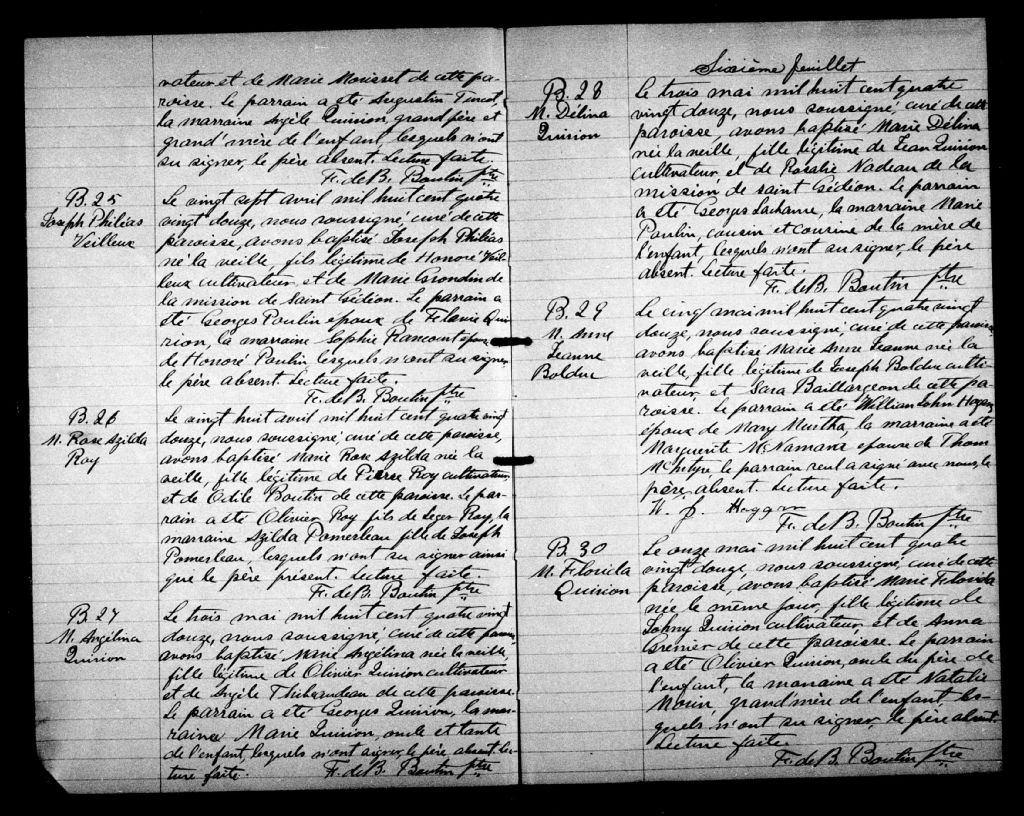 vateur et de Marie Morisset de cette pa-
roisse. Le parrain a été Augustin Turcot,
la marraine Angèle Quirion, grand père et
grand'mère de l'enfant, lesquels n'ont
su signer, le père absent. Lecture faite.
F. de B. Boutin ptre
B. 25
Joseph Philéas
Veilleux
Le vingt sept avril mil huit cent quatre
vingt douze, nous soussigné, curé de cette
paroisse, avons baptisé Joseph Philéas
né la veille, fils légitime de Honoré Veil-
leux cultivateur, et de Marie Grondin de
la mission de Saint Gédéon. Le parrain a
été Georges Poulin époux de Flavie Qui-
rion, la marraine Sophie Rancourt épouse
de Honoré Poulin lesquels n'ont su signer
le père absent. Lecture faite.
F. de B. Boutin ptre
B. 26
M. Rose Azilda
Roy
Le vingt huit avril mil huit cent quatre vingt
douze, nous soussigné, curé de cette paroisse,
avons baptisé Marie Rose Azilda née la
veille, fille légitime de Pierre Roy cultivateur,
et de Odile Boutin de cette paroisse. Le par-
rain a été Olivier Roy fils de Leger Roy, la
marraine Azilda Pomerleau fille de Joseph
Pomerleau, lesquels n'ont su signer ainsi
que le père présent. Lecture faite.
F. de B. Boutin ptre
B. 27
M. Angélina
Quirion
Le trois mai mil huit cent quatre vingt
douze, nous soussigné, curé de cette paroisse,
avons baptisé Marie Angélina née la veille,
fille légitime de Olivier Quirion cultivateur
et de Angèle Thibaudeau de cette paroisse.
Le parrain a été Georges Quirion, la mar-
raine Marie Quirion, oncle et tante
de l'enfant, lesquels n'ont su signer, le père absent. Lec-
ture faite.
F. de B. Boutin ptre
Sixième feuillet
B. 28
M. Délina
Quirion
Le trois mai mil huit cent quatre
vingt douze, nous soussigné, curé de cette
paroisse, avons baptisé Marie Délina
née la veille, fille légitime de Jean Quirion
cultivateur, et de Rosalie Nadeau de la
mission de saint Gédéon. Le parrain
a été Georges Lachance, la marraine Marie
Poulin, cousin et cousine de la mère de
l'enfant, lesquels n'ont su signer, le père
absent. Lecture faite.
F. de B. Boutin ptre
B. 29
M. Anne
Jeanne
Bolduc
Le cinq mai mil huit cent quatre vingt
douze, nous soussigné, curé de cette paroisse
avons baptisé Marie Anne Jeanne née la
veille, fille légitime de Joseph Bolduc culti-
vateur, et Sara Baillargeon de cette pa-
roisse. Le parrain a été William John Hogan
époux de Mary Murtha, la marraine a été
Marguerite McNamara épouse de Thom
McIntyre le parrain seul a signé avec nous, le
père, absent. Lecture faite.
W. J. Hoggan
F. de B. Boutin ptre
B. 30
M. Florida
Quirion
Le onze mai mil huit cent quatre
vingt douze, nous soussigné, curé de cette
paroisse, avons baptisé Marie Florida
née le même jour, fille légitime de
Johny Quirion cultivateur, et de Anna
Grenier de cette paroisse. Le parrain
a été Olivier Quirion, oncle du père de
l'enfant, la marraine a été Natalie
Morin, grand'mère de l'enfant, les-
quels n'ont su signer, le père absent.
Lecture faite.
F. de B. Boutin ptre